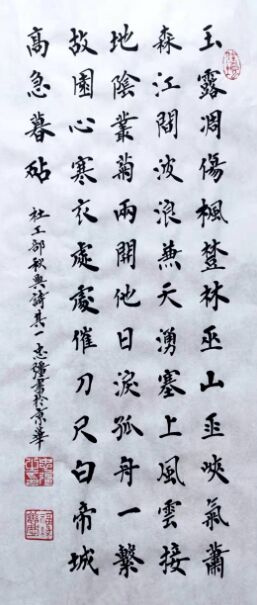 玉露凋傷楓樹林巫山巫峽氣蕭
森江間波浪兼天湧塞上風雲接
地陰叢菊兩開他日淚孤舟一繫
故園心寒衣處處催刀尺白帝城
高急暮砧
杜工部秋興詩其一 書於京華